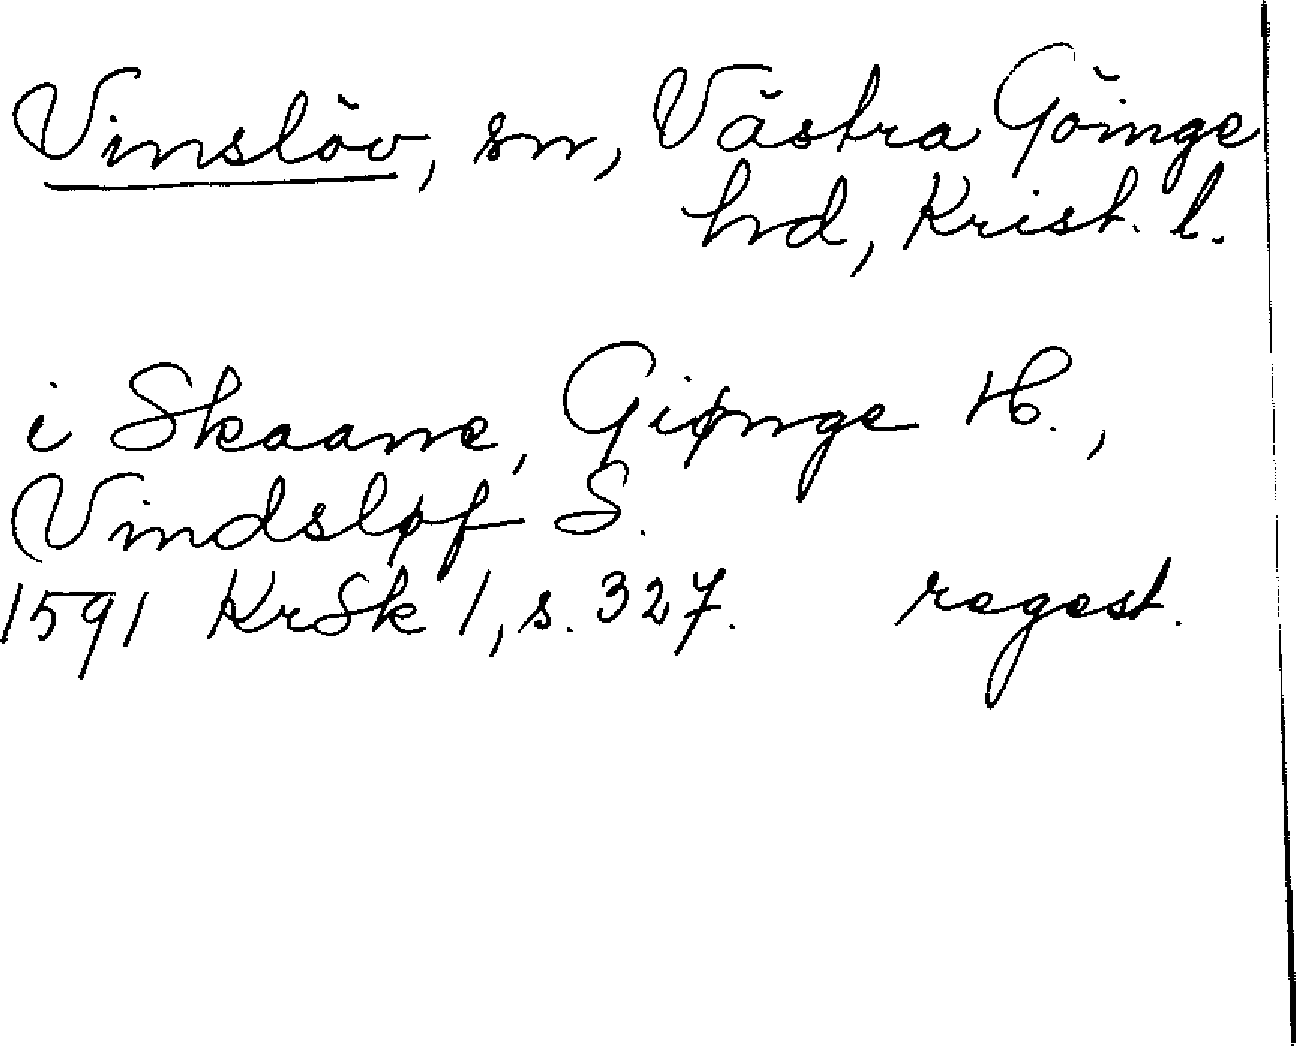 Vinslöv, sn, Västra Göinge
hd, Krist. l.
i Skaane, Giønge H.,
Vindsløf S.
1591 KrSk 1, s. 327. regest.